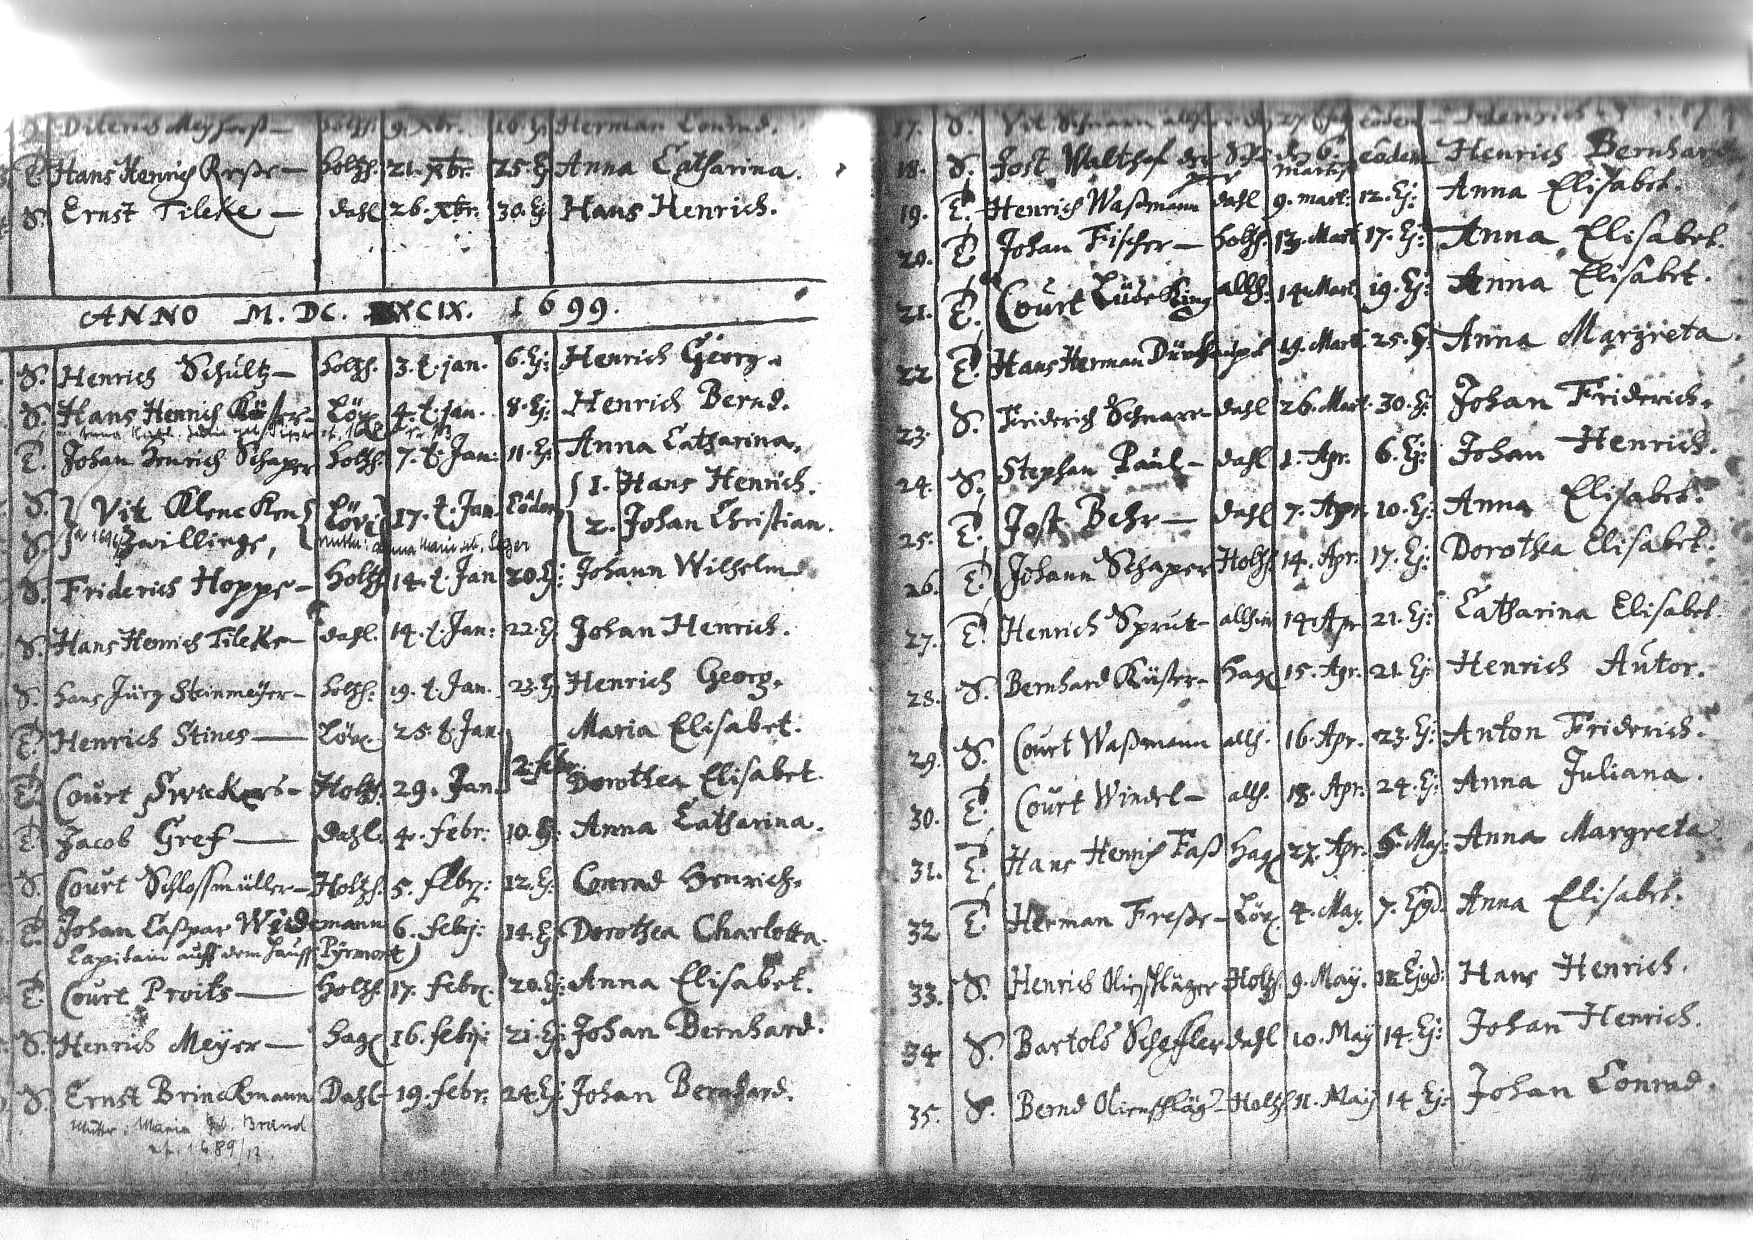 S. Diterich Meyhoff – Holtzs. 9. Xbr. 16. Ej. Herman Conrad.
T. Hans Henrich Resse – Holtzs. 21. Xbr. 25. Ej Anna Catharina.
S. Ernst Tileke – dahl 26. Xbr. 30. Ej Hans Henrich.
ANNO M. DC. XCIX. 1699.
S. Henrich Schultz – Holtzs. 3. t. jan. 6. Ej: Henrich Georg.
S. Hans Henrich Küster – Löv. 4. t. jan. 8. Ej: Henrich Bernd.
T. Johan Henrich Schaper Holtzs. 7. t. Jan: 11. Ej: Anna Catharina.
S. } Vit Klencken { Lövi } 17. t. Jan. Eodem { 1. Hans Henrich.
S. } Zwillinge, 2. Johan Christian.
S. Friderich Hoppe – Holtzs 14. t. Jan 20. Ej: Johann Wilhelm
S. Hans Henrich Tileke – dahl. 14. t. Jan: 22. Ej Johan Henrich.
S. Hans Jürg Steinmeyer – Holtzs. 19. t. Jan. 23. Ej Henrich Georg.
T. Henrich Stines – Löv. 25. t. Jan Maria Elisabet.
T. Court Frickers – Holtzs. 29. Jan } 2. febr. Dorothea Elisabet.
T. Jacob Gref – Dahl. 4. febr: 10. Ej: Anna Catharina.
S. Court Schlossmüller – Holtzs. 5. febr: 12. Ej: Conrad Henrich.
T. Johan Caspar Widemann 6. febr: 14. Ej Dorothea Charlotta.
Capitain auff dem Hauss Pyrmont)
T. Court Proits – Holtzs 17. febr. 20. Ej: Anna Elisabet.
S. Henrich Meyer – Hag 16. febr: 21. Ej: Johan Bernhard.
S. Ernst Brinckmann Dahl – 19. febr. 24. Ej: Johan Bernhard.
Mutter: Maria geb. Brand
1689/
17. S. Vit Schnarr Eodem – Henrich
18. S. Jost Walthof der Martij eodem – Henrich Bernhard
19. T. Henrich Waßmann dahl 9. mart: 12. Ej: Anna Elisabet.
20. T. Johan Fischer – Holtzs. 13. Mart 17. Ej: Anna Elisabet.
21. T. Court Lüdeking allh: 14. Mart. 19. Ej: Anna Elisabet.
22 T. Hans Herman 19. Mart. 25. Ej. Anna Margreta.
23. S. Friderich Schnarr – dahl 26. Mart. 30. Ej: Johan Friderich.
24. S. Stephan Paul – dahl 1. Apr. 6. Ej: Johan Henrich.
25. T. Jost Behr – Dahl 7. Apr. 10. Ej: Anna Elisabet.
26. T. Johann Schaper Holtzs 14. Apr. 17. Ej: Dorothea Elisabet.
27. T. Henrich Sprut – allhie 14. Apr 21. Ej: Catharina Elisabet.
28. S. Bernhard Küster – Hag 15. Apr. 21. Ej: Henrich Autor.
29. S. Court Waßmann allh. 16. Apr. 23. Ej: Anton Friderich.
30. T. Court Windel – allh. 18. Apr: 24. Ej: Anna Juliana.
31. T. Hans Henrich Faß Hag 27. Apr. 5. Maj: Anna Margreta.
32 T. Herman Frese – Löv. 4. May. 7. Ejgd. Anna Elisabet.
33. S. Henrich Olieschläger Holtzs. 9. May. 12 Ejgd: Hans Henrich.
34 S. Bartold Scheffler dahl 10. May 14. Ej: Johan Henrich.
35. S. Bernd Olieschläg – Holtzs 11. May 14 Ej: Johan Conrad.